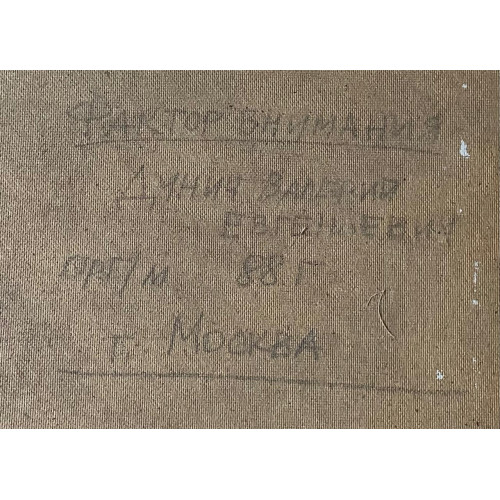 ФАКТОР ВНИМАНИЯ
ДУНИЧ ВАЛЕРИЙ
ЕВГЕНИЕВИЧ
ОРГ/М 88 Г
Г. МОСКВА